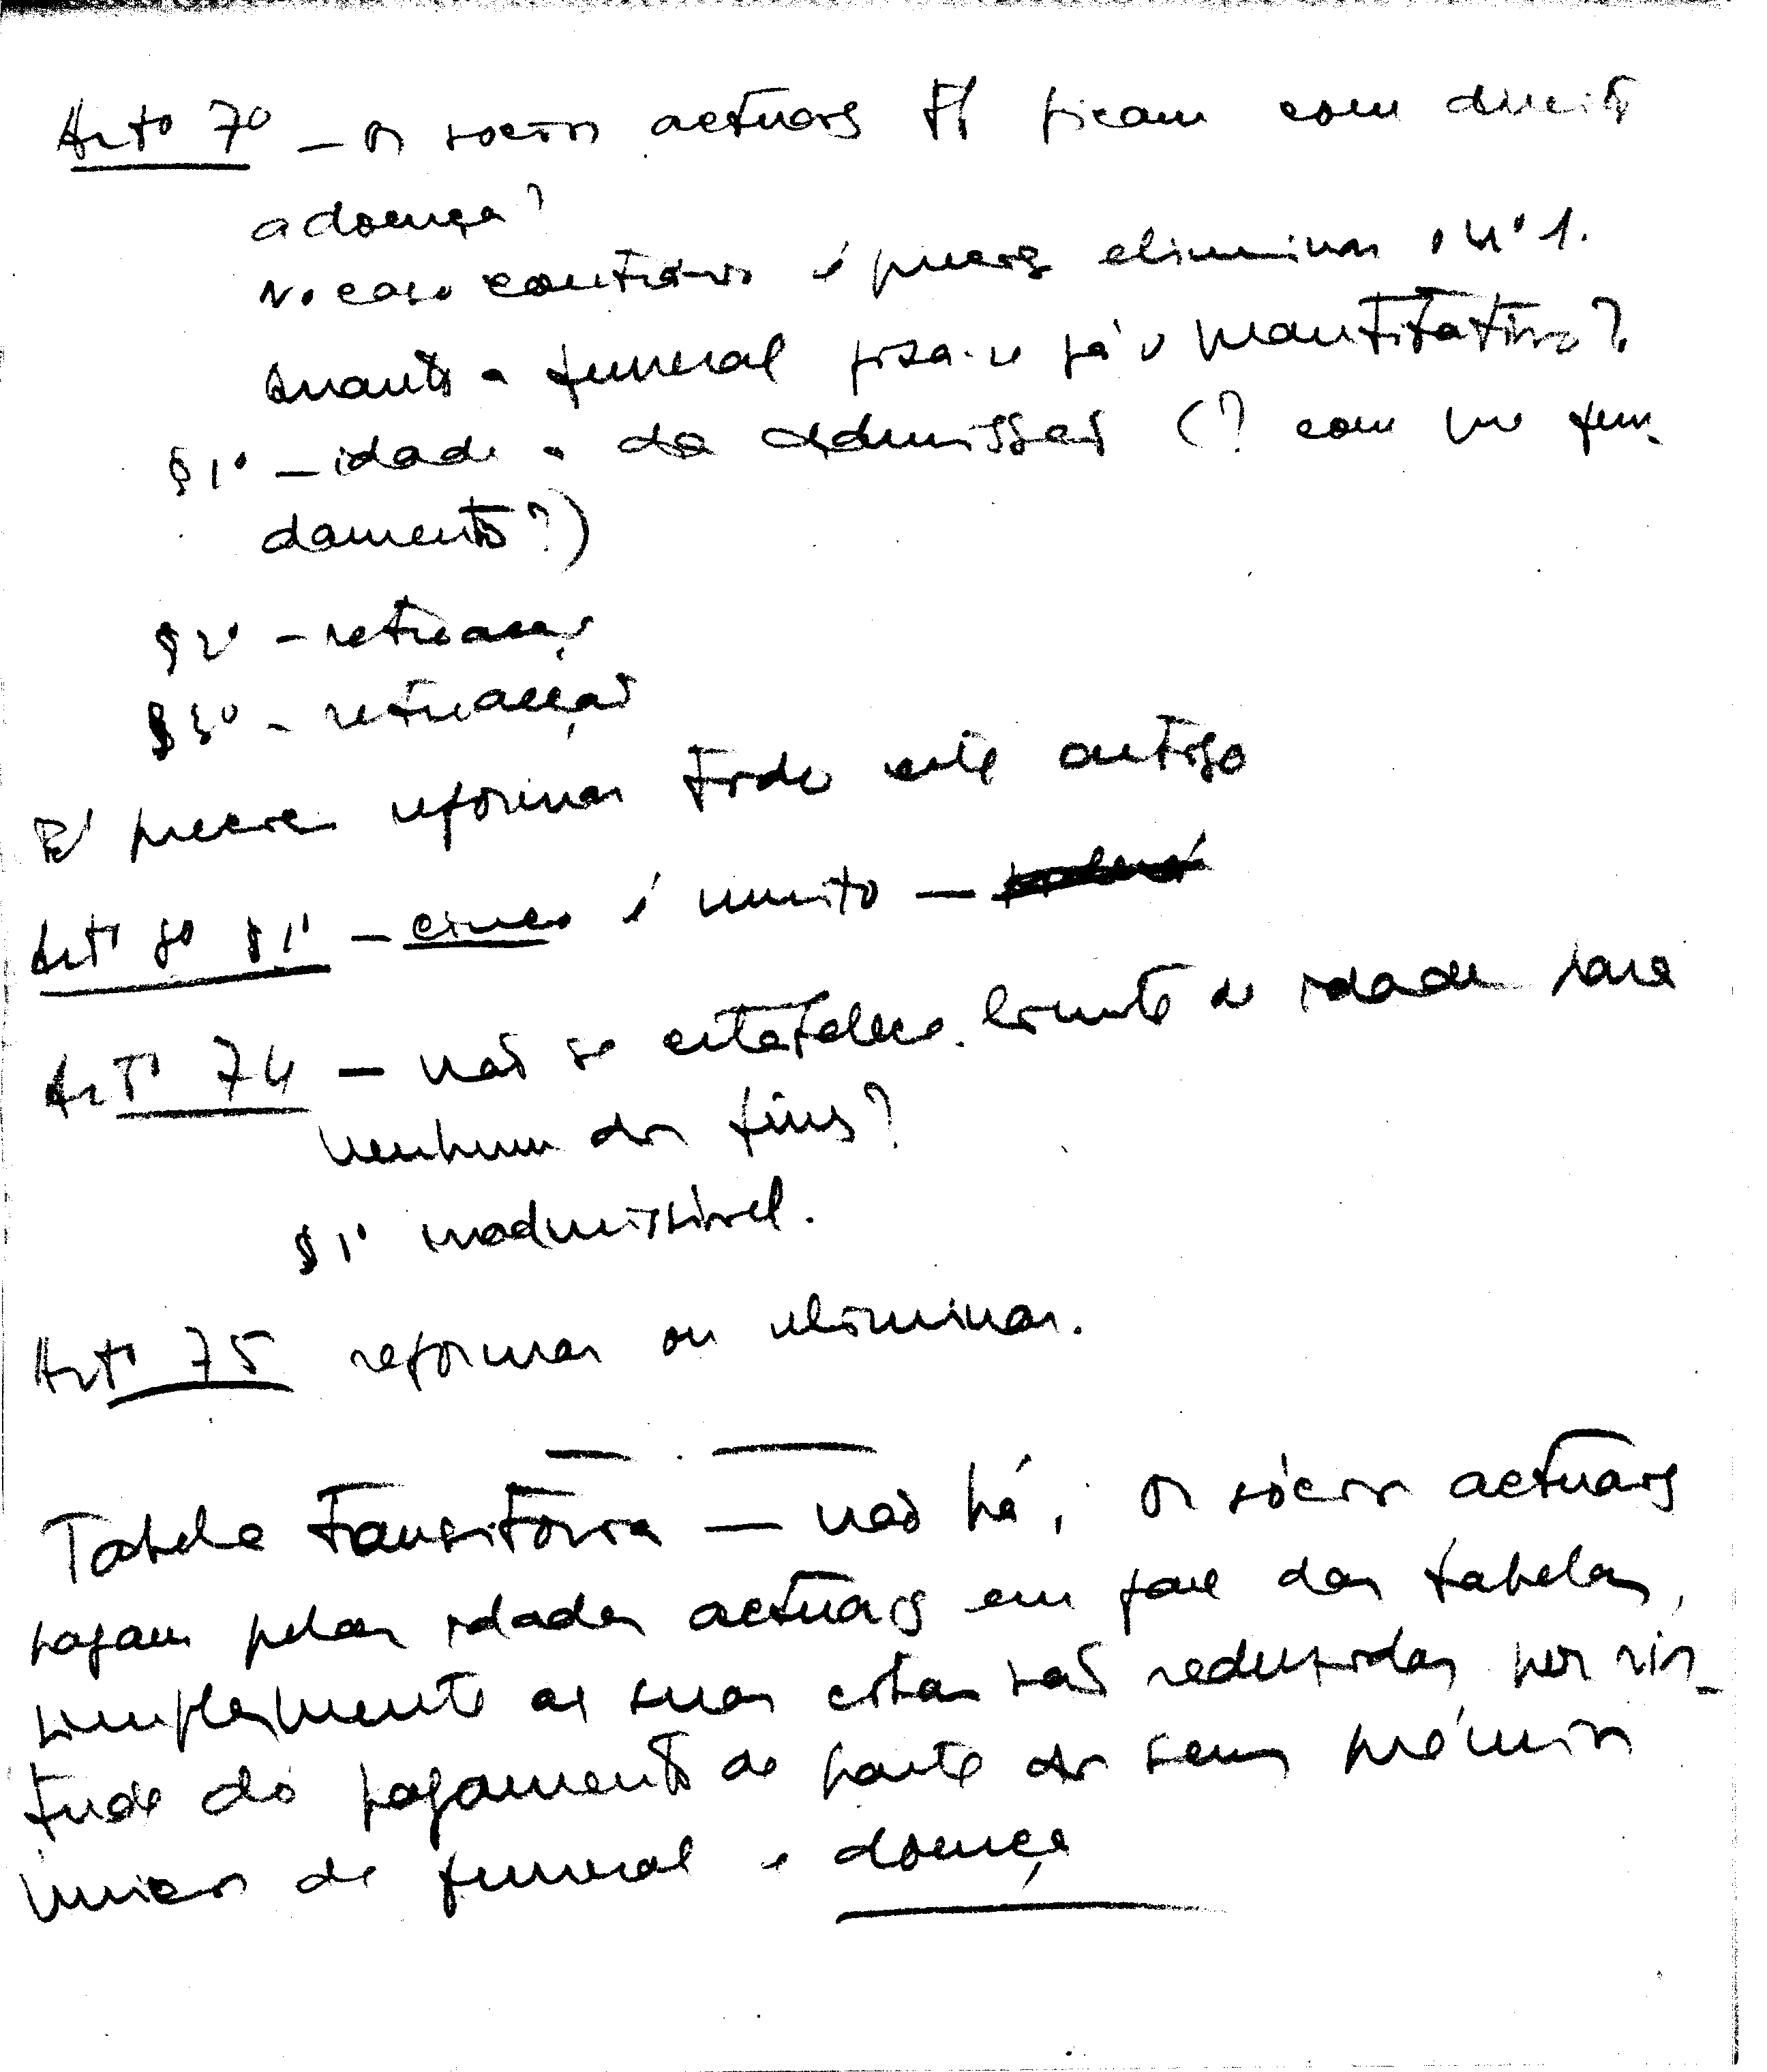 Artº 7º — os socios actuais ficam com direito
a doença?
No caso contrário é preciso eliminar o nº 1.
Quanto a funeral fixa-se já o quantitativo?
§ 1º — idade a da admissão (? com que fun-
damento?)
§ 2º — retroacção
§ 3º — retroacção
É preciso reformar todo este artigo
Artº 8º § 1º — cinco é muito —
Artº 74 — não se estabelece limite de idade para
nenhum dos fins?
§ 1º inadmissível.
Artº 75 reformar ou eliminar.
Tabela transitória — não há, os sócios actuais
pagam pelas idades actuais em face das tabelas,
simplesmente as suas cotas são reduzidas por vir-
tude do pagamento de parte dos seus prémios
unicos de funeral e doença